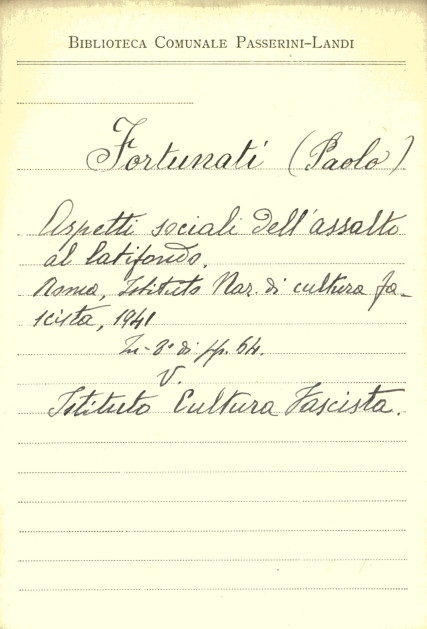 BIBLIOTECA COMUNALE PASSERINI-LANDI
Fortunati (Paolo)
Aspetti sociali dell'assalto
al latifondo.
Roma, Istituto Naz. di cultura fa-
scista, 1941
In-8° di pp. 64.
V.
Istituto Cultura Fascista.